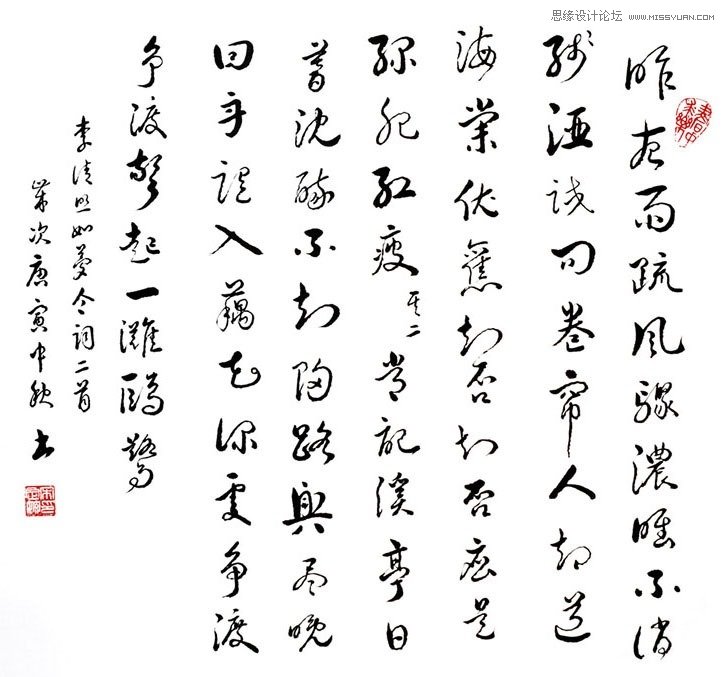 思缘设计论坛 WWW.MISSYUAN.COM
昨夜雨疏风骤浓睡不消
残酒试问卷帘人却道
海棠依舊知否知否应是
绿肥红瘦 其二 常记溪亭日
暮沈醉不知归路興尽晚
回舟误入藕花深处争渡
争渡惊起一灘鷗鷺
李清照如梦令词二首
岁次庚寅中秋 书